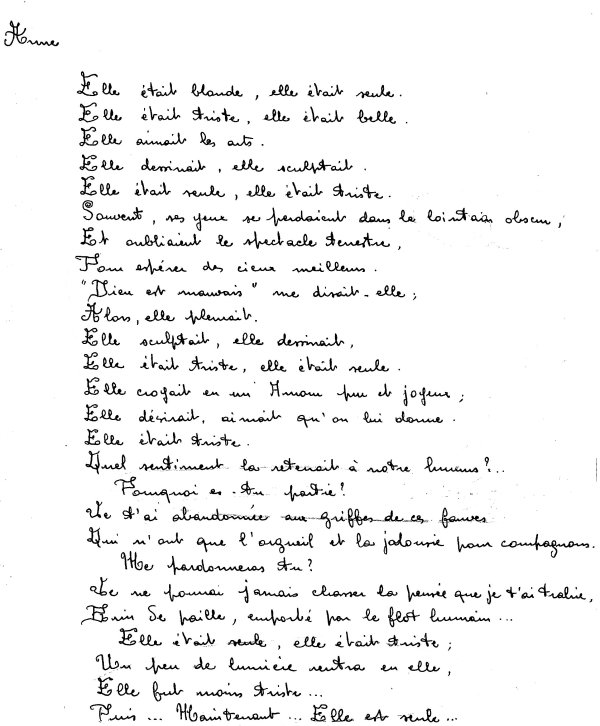 Anne
Elle était blonde, elle était seule.
Elle était triste, elle était belle.
Elle aimait les arts.
Elle dessinait, elle sculptait.
Elle était seule, elle était triste.
Souvent, ses yeux se perdaient dans le lointain obscur,
Et oubliaient le spectacle terrestre,
Pour espérer des cieux meilleurs.
"Dieu est mauvais" me disait-elle ;
Alors, elle pleurait.
Elle sculptait, elle dessinait,
Elle était triste, elle était seule.
Elle croyait en un Amour pur et joyeux ;
Elle désirait, aimait qu'on lui donne.
Elle était triste.
Quel sentiment la retenait à notre humus?..
Pourquoi es-tu partie?
Je t'ai abandonnée aux griffes de ces fauves
Qui n'ont que l'orgueil et la jalousie pour compagnons.
Me pardonneras tu?
Je ne pourrai jamais chasser la pensée que je t'ai trahie,
Brin de paille, emporté par le flot humain...
Elle était seule, elle était triste ;
Un peu de lumière rentra en elle,
Elle fut moins triste...
Puis... Maintenant... Elle est seule...